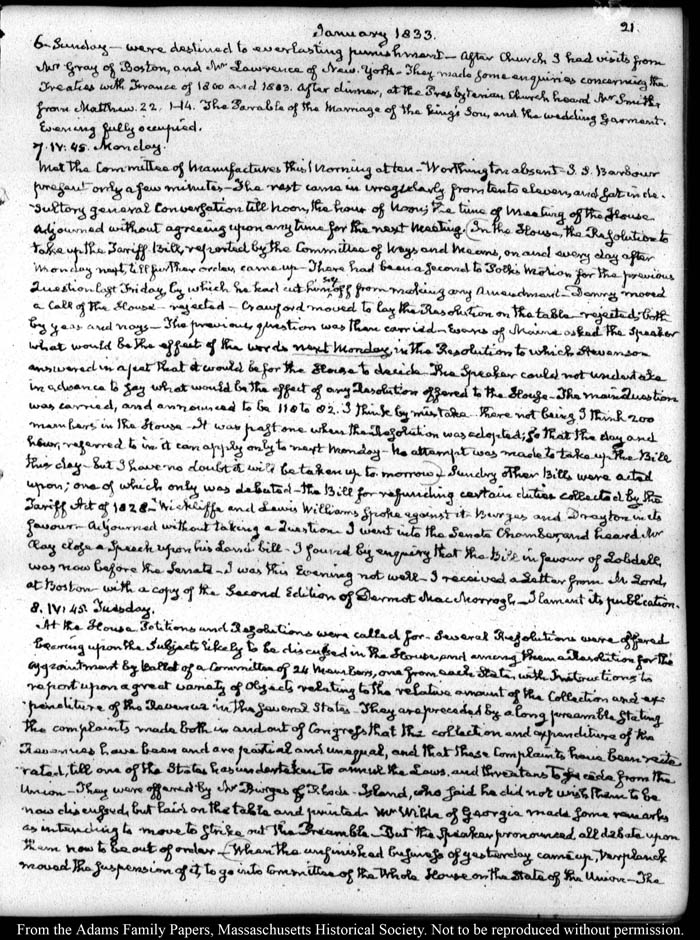 January 1833.
21.
6. Sunday — were destined to everlasting punishment — After Church I had visits from
Mr Gray of Boston, and Mr Lawrence of New-York — They made some enquiries concerning the
Treaties with France of 1800 and 1803. After dinner, at the Presbyterian Church heard Mr Smith
from Matthew. 22. 1–14. The Parable of the Marriage of the king's Son, and the wedding Garment.
Evening fully occupied.
7. IV: 45. Monday.
Met the Committee of Manufactures this Morning at ten — Worthington absent — J. S. Barbour
present only a few minutes — The rest came in irregularly from ten to eleven, and sat in de-
sultory general Conversation till Noon, the hour of Noon, the time of Meeting of the House
Adjourned without agreeing upon any time for the next Meeting. (In the House, the Resolution to
take up the Tariff Bill, reported by the Committee of Ways and Means, on and every day after
Monday next, till further order, came up — There had been a Second to Polk's Motion for the previous
Question last Friday, by which he had cut himself off from making any Amendment — Denny moved
a Call of the House — rejected — Crawford moved to lay the Resolution on the table — rejected; both
by yeas and nays — The previous question was then carried — Evans of Maine asked the Speaker
what would be the effect of the words next Monday, in the Resolution to which Stevenson
answered in a jest that it would be for the House to decide. The Speaker could not undertake
in advance to say what would be the effect of any Resolution offered to the House — The main Question
was carried, and announced to be 110 to 82. I think by mistake — there not being I think 200
members in the House — It was past one when the Resolution was adopted; so that the day and
hour, referred to in it can apply only to next Monday — No attempt was made to take up the Bill
this day — but I have no doubt it will be taken up to morrow) Sundry other Bills were acted
upon; one of which only was debated — the Bill for refunding certain duties collected by the
Tariff Act of 1828 — Wickliffe and Lewis Williams spoke against it — Burges and Drayton in its
favour — Adjourned without taking a Question — I went into the Senate Chamber, and heard Mr
Clay close a Speech upon his Land bill — I found by enquiry that the Bill in favour of Lobdell,
was now before the Senate — I was this Evening not well — I received a Letter from M. Lord,
at Boston — with a copy of the Second Edition of Dermot Mac Morrogh — I lament its publication.
8. IV: 45. Tuesday.
At the House Petitions and Resolutions were called for — Several Resolutions were offered
bearing upon the Subjects likely to be discussed in the House, and among them a Resolution for the
appointment by Ballot of a Committee of 24 Members, one from each State, with Instructions to
report upon a great variety of Objects relating to the relative amount of the Collection and ex-
penditure of the Revenue in the several States — They are preceded by a long preamble stating
the complaints made both in and out of Congress that the collection and expenditure of the
Revenues have been and are partial and unequal, and that these Complaints have been reite-
rated, till one of the States has undertaken to annul the Laws, and threatens to secede from the
Union — They were offered by Mr Burges of Rhode-Island, who said he did not wish them to be
now discussed, but laid on the table and printed — Mr Wilde of Georgia made some remarks
as intending to move to strike out the Preamble — But the Speaker pronounced all debate upon
them now to be out of order — (When the unfinished business of yesterday came up, Verplanck
moved the suspension of it, to go into Committee of the Whole House on the State of the Union — The
From the Adams Family Papers, Massachusetts Historical Society. Not to be reproduced without permission.